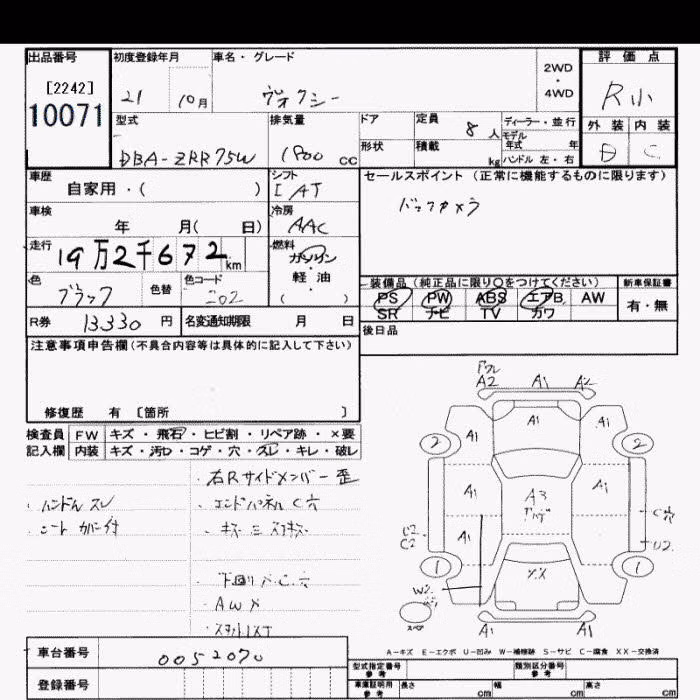 出品番号 初度登録年月 車名・グレード 2WD・4WD 評価点
[2242]
10071
21 10月 ヴォクシー R小
型式 排気量 ドア 定員 8人 ディーラー・並行 外装 内装
DBA-ZRR75W 1800 CC 形状 積載 kg モデル年式 年 ハンドル 左・右 C
車歴 シフト セールスポイント (正常に機能するものに限ります)
自家用・( ) I AT バックカメラ
車検 年 月( 日) 冷房 AAC
走行 19万2千672km 燃料 ガソリン・軽油 ( )
色 ブラック 色替 色コード 202
装備品(純正品に限り〇をつけてください) 新車保証書
PS PW ABS エアB AW 有・無
SR ナビ TV カワ
R券 13330円 名変通知期限 月 日
後日品
注意事項申告欄(不具合内容等は具体的に記入して下さい)
修復歴 有 〔箇所 〕
検査員 FW キズ・飛石・ヒビ割・リペア跡・×要
記入欄 内装 キズ・汚レ・コゲ・穴・スレ・キレ・破レ
・右Rサイドメンバー歪
・ハンドルスレ ・エンドパネルC穴
・シートカバー付
・下回りメC穴
・AWメ
A2 A1 A2
A1 A1 A1
2 2
A1 A3 A1
A1
C2 C穴
U2
1 1
W2 XX
スペア A1 A1
A-キズ E-エクボ U-凹み W-補修跡 S-サビ C-腐食 XX-交換済
車台番号 0052070
登録番号
型式指定番号 参考 類別区分番号 参考
車庫証明用 参考 長さ cm 幅 cm 高さ cm